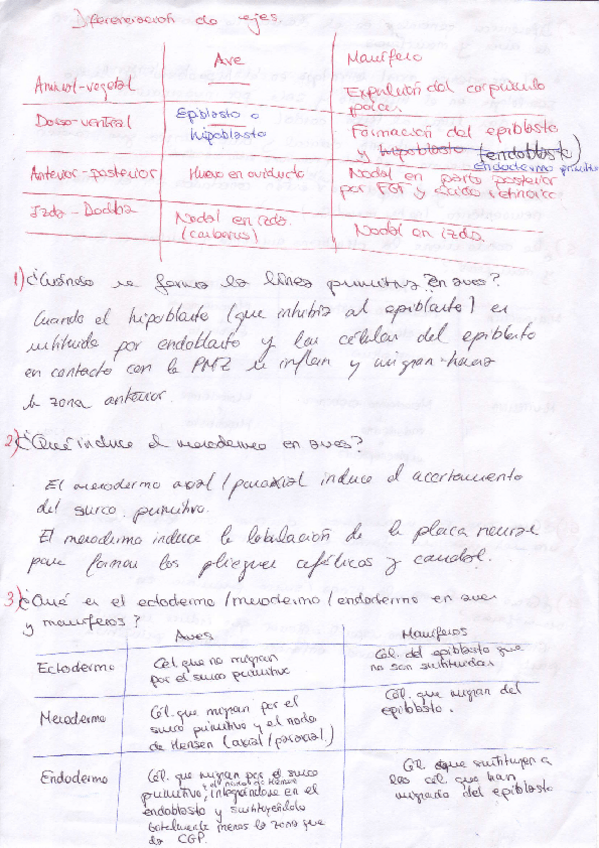 Diferenciación de ejes.
Ave Mamífero
Animal-vegetal Expulsión del corpúsculo polar.
Dorso-ventral Epiblasto o hipoblasto Formación del epiblasto y hipoblasto (endoblasto) endodermo primitivo
Anterior-posterior Huevo en oviducto Nodal en parte posterior por FGF y ácido retinoico
Izda-Dcha Nodal en izda. Nodal en izda.
1) ¿Cuándo se forma la línea primitiva en aves?
Cuando el hipoblasto (que inhibía al epiblasto) es
sustituido por endoblasto y las células del epiblasto
en contacto con la PMZ se inflan y migran hacia
la zona anterior.
2) ¿Qué induce el mesodermo en aves?
El mesodermo axial/paraxial induce el acortamiento
del surco primitivo.
El mesodermo induce la lobulación de la placa neural
para formar los pliegues cefálicos y caudal.
3) ¿Qué es el ectodermo/mesodermo/endodermo en aves
y mamíferos?
Aves Mamíferos
Ectodermo Cél. que no migran por el surco primitivo Cél. del epiblasto que no son sustituidas
Mesodermo Cél. que migran por el surco primitivo y el nodo de Hensen (axial/paraxial) Cél. que migran del epiblasto.
Endodermo Cél. que migran por el surco primitivo, integrándose en el endoblasto y sustituyéndolo totalmente menos la zona que da CGP. Cél. que sustituyen a las cél. que han migrado del epiblasto